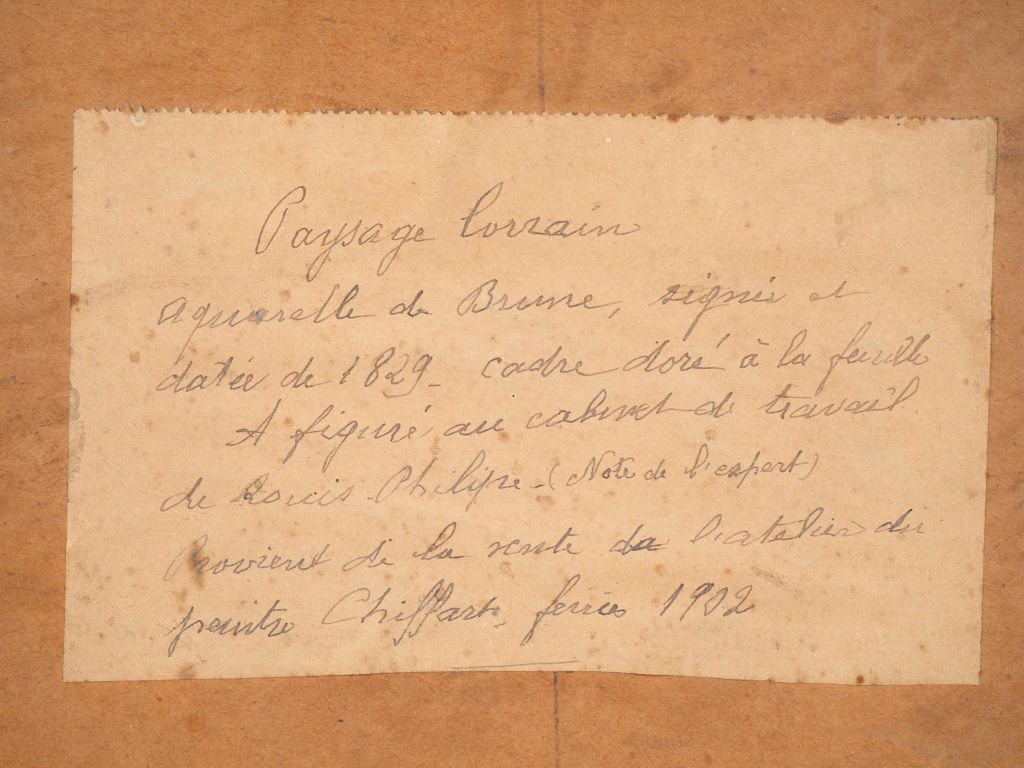 Paysage lorrain
aquarelle de Brune, signée et
datée de 1829 - cadre doré à la feuille
A figuré au cabinet de travail
de Louis Philipe - (Note de l'expert)
Provient de la vente de l'atelier du
peintre Chiffart, 1902